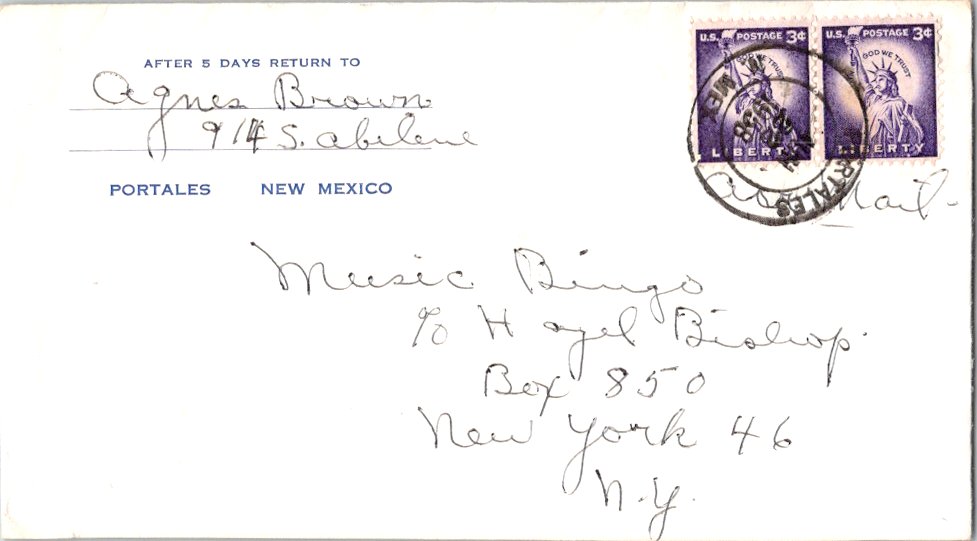 AFTER 5 DAYS RETURN TO
Agnes Brown
914 S. Abilene
PORTALES NEW MEXICO
U.S. POSTAGE 3¢
GOD WE TRUST
LIBERTY
U.S. POSTAGE 3¢
GOD WE TRUST
LIBERTY
PORTALES
N. MEX
1958
Mail
Music Bingo
c/o Hazel Bishop
Box 850
New York 46
N.Y.